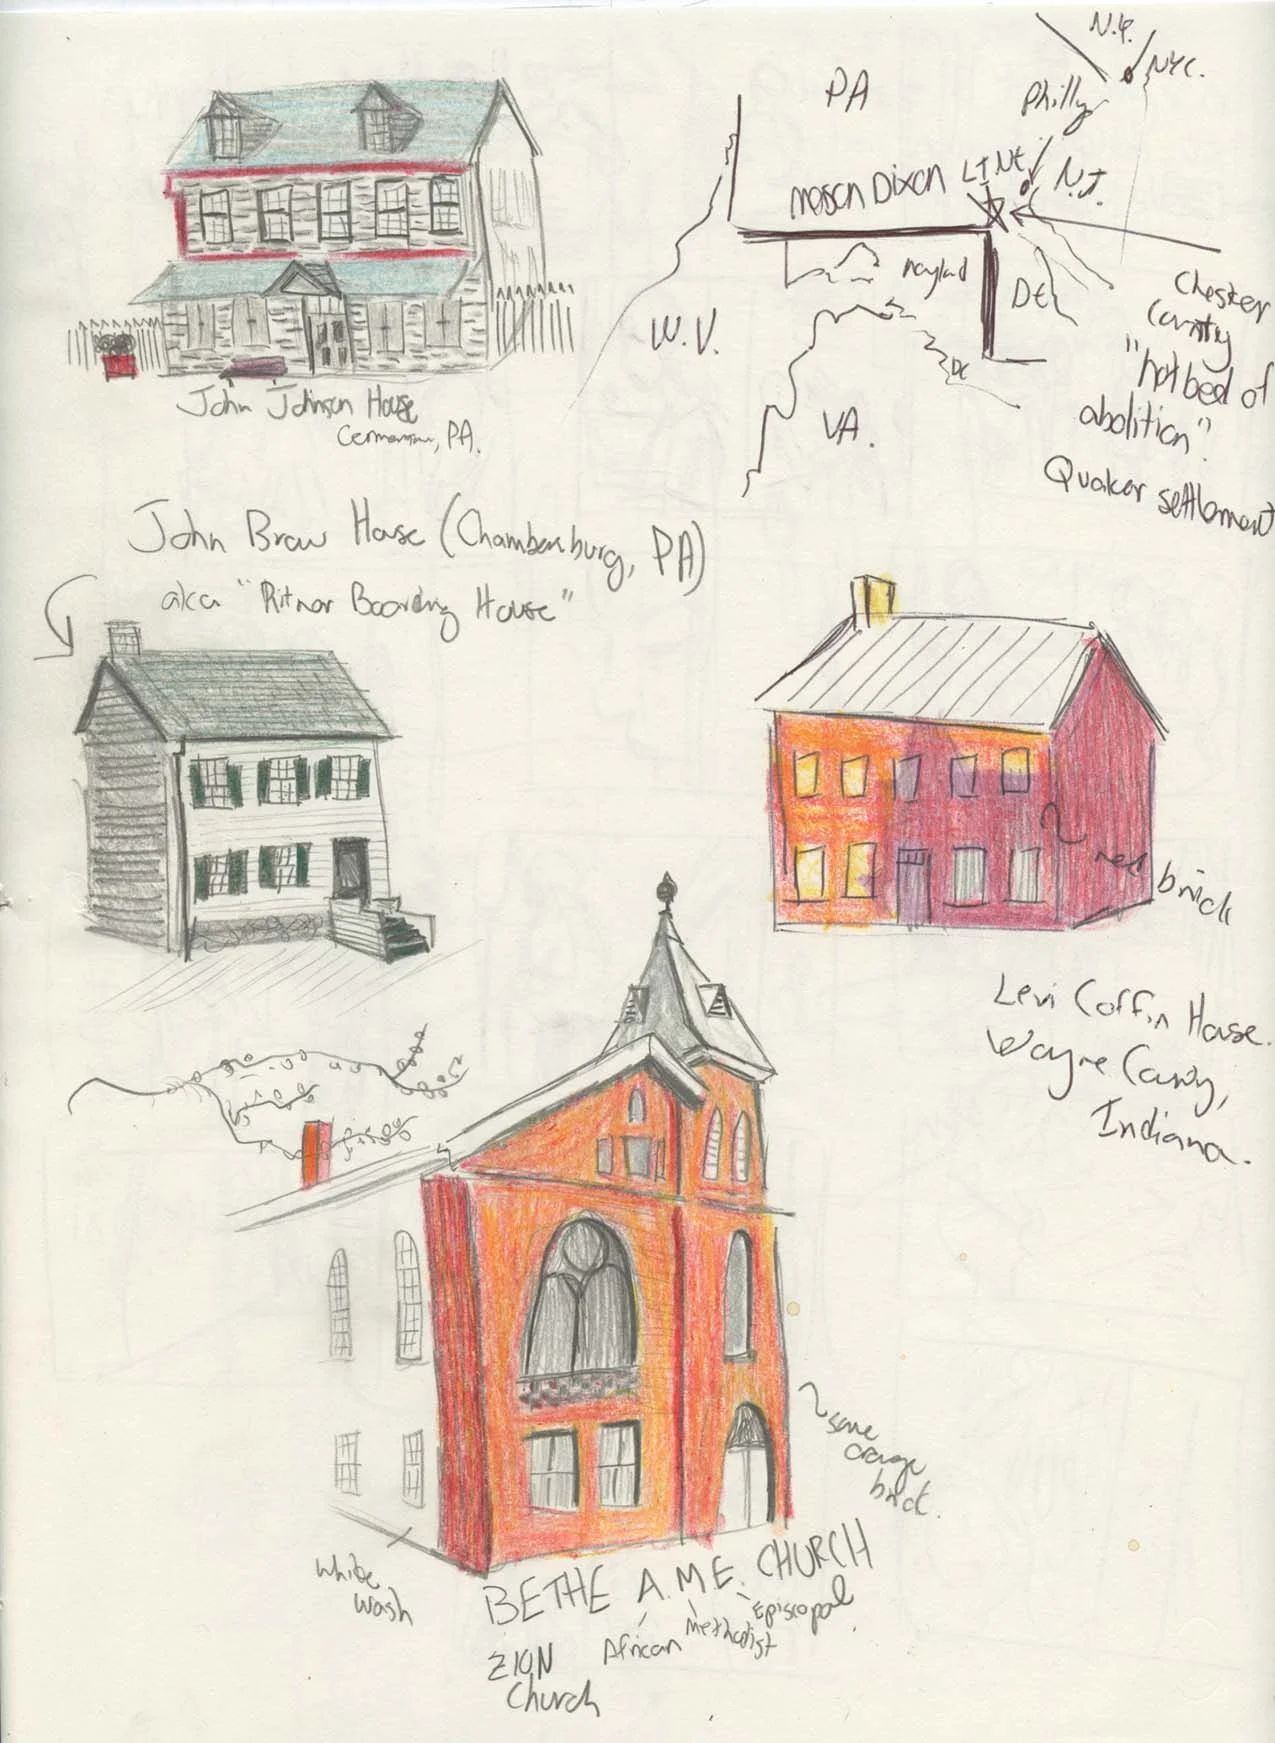 N.Y.
NYC.
PA
Philly
Mason Dixon LINE
N.J.
W.V.
DE
DC
VA.
Chester
County
"hotbed of
abolition".
Quaker settlement
John Johnson House
PA.
John Brow House (Chambersburg, PA)
aka "Ritnar Boarding House"
red brick
Levi Coffin House.
Wayne County,
Indiana.
same
orange
brick.
white
wash
BETHE A.M.E. CHURCH
African Methodist Episcopal
ZION
Church